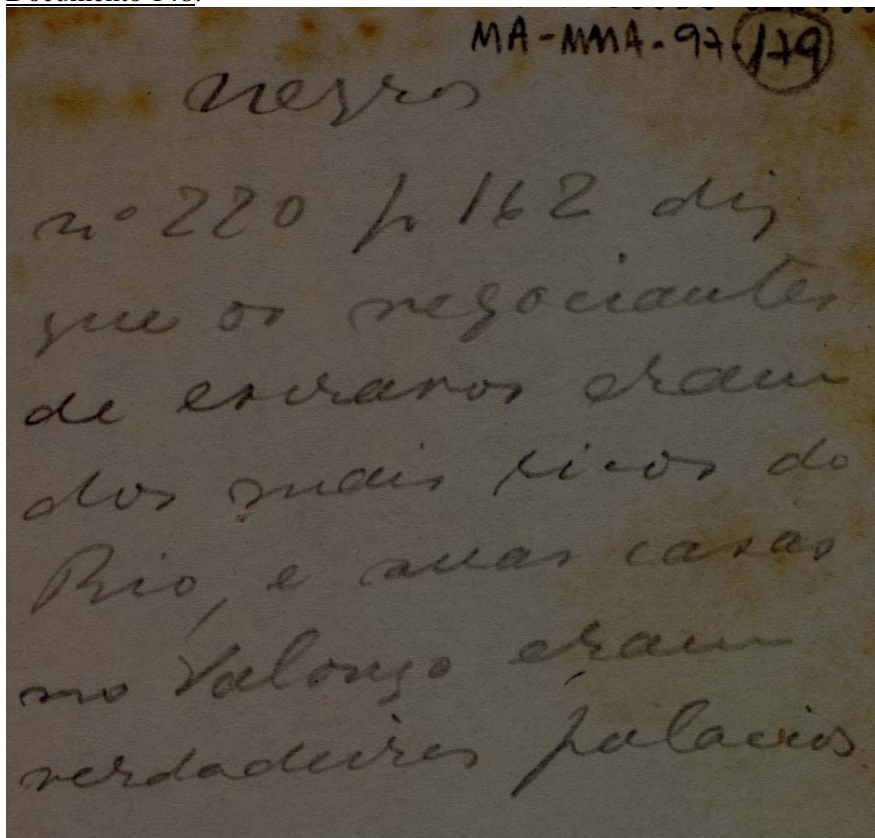 MA-MMA-97-179
negros
nº 220 p 162 diz
que os negociantes
de escravos eram
dos mais ricos do
Rio, e suas casas
no Valongo eram
verdadeiros palacios